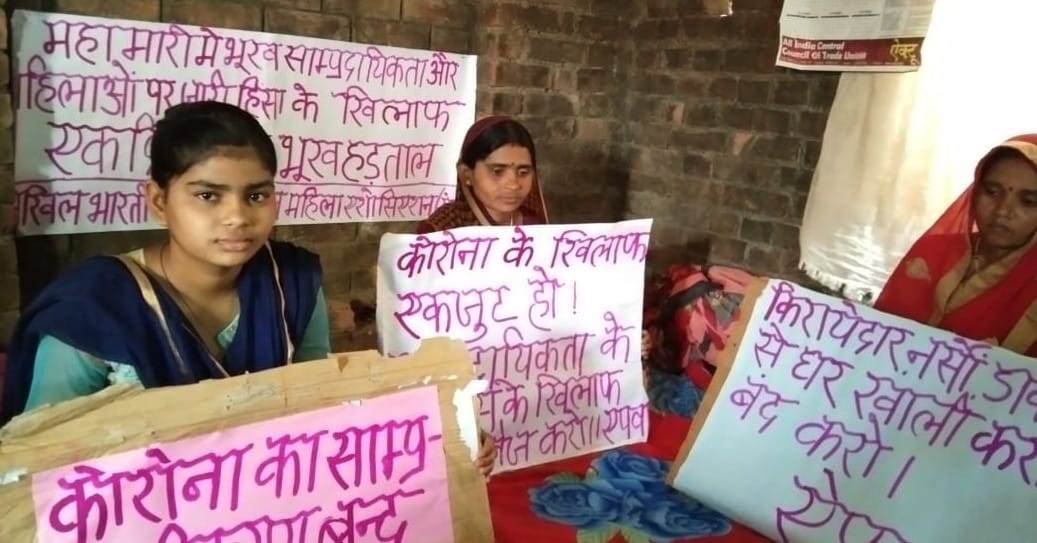 महामारी मे भूख साम्प्रदायिकता और
हिलाओं पर जारी हिंसा के खिलाफ
एक भूख हड़ताल
खिल भारती महिला एशोसिएशन
All India Central
Council Of Trade Unions
ऐक्टू
कोरोना के खिलाफ
एकजुट हो!
दायिकता के
के खिलाफ
करो।। एपवा
किरायेदार नर्सों, डाक
से घर खाली कर
बंद करो।
कोरोना का साम्प्र-
बन्द